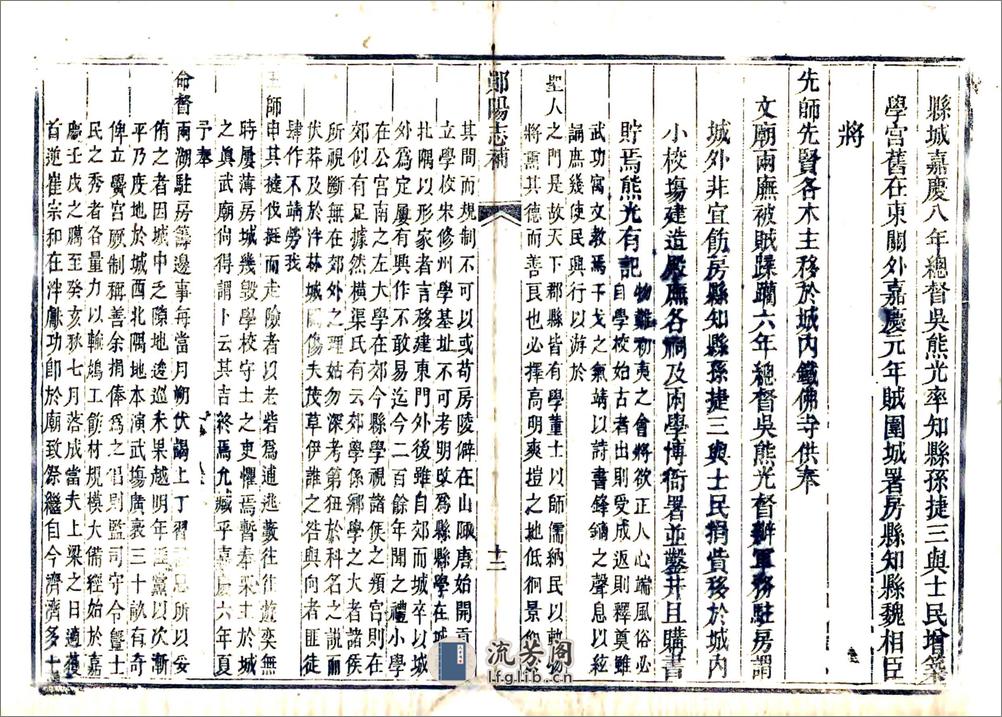 縣城嘉慶八年總督吳熊光率知縣孫捷三與士民增築
學宮舊在東關外嘉慶元年賊圍城署房縣知縣魏相臣
將
先師先賢各木主移於城內鐵佛寺供奉
文廟兩廡被賊蹂躪六年總督吳熊光督辦軍務駐房謂
城外非宜飭房縣知縣孫捷三與士民捐貲移於城內
小校場建造殿廡各祠及兩學博衙署並鑿井且購書
貯焉熊光有記
物難初夷之會將欲正人心端風俗必
自學校始古者出則受成返則釋奠雖
武功寓文教焉干戈之氣靖以詩書鋒鏑之聲息以絃
誦庶幾使民與行以游於
聖人之門是故天下郡縣皆有學董士以師儒納民以軌物
將熏其德而善良也必擇高明爽塏之地低徊景仰
鄖陽志補
十二
其間而規制不可以或苟房陵僻在山陬唐始開貢
立學校宋修州學基址不可考明改為縣縣學在城
北隅以形家者言移建東門外後雖自郊而城卒以城
外為定屢有興作不敢易迄今二百餘年聞之禮小學
在公宮南之左大學在郊今縣學視諸侯之頖宮則在
郊似有足據然橫渠氏有云郊學係鄉學之大者諸侯
所視斷無在郊外之理姑勿深考第狃於科名之說而
伏莽及於泮林城闕傷夫茂草伊誰之咎與向者匪徒
肆作不靖勞我
王師申其撻伐挺而走險者以老砦為逋逃藪往往遊奕無
時屢薄房城幾毀學校守土之吏懼焉暫奉采主於城
之眞武廟倘得謂卜云其吉終焉允臧乎嘉慶六年夏
予奉
命督兩湖駐房籌邊事每當月朔伏謁上丁習思所以妥
侑之者因城中乏隙地逡巡未果越明年匪黨以次漸
平乃度地於城西北隅地本演武場廣袤三十畝有奇
俾立黌宮厥制稱善余捐俸為之倡則監司守令暨士
民之秀者各量力以輸鳩工飭材規模大備經始於嘉
慶壬戌之臘至癸亥秋七月落成當夫上梁之日適獲
首逆崔宗和在泮獻功即於廟致祭繼自今濟濟多士
流芳閣
lfglib.cn